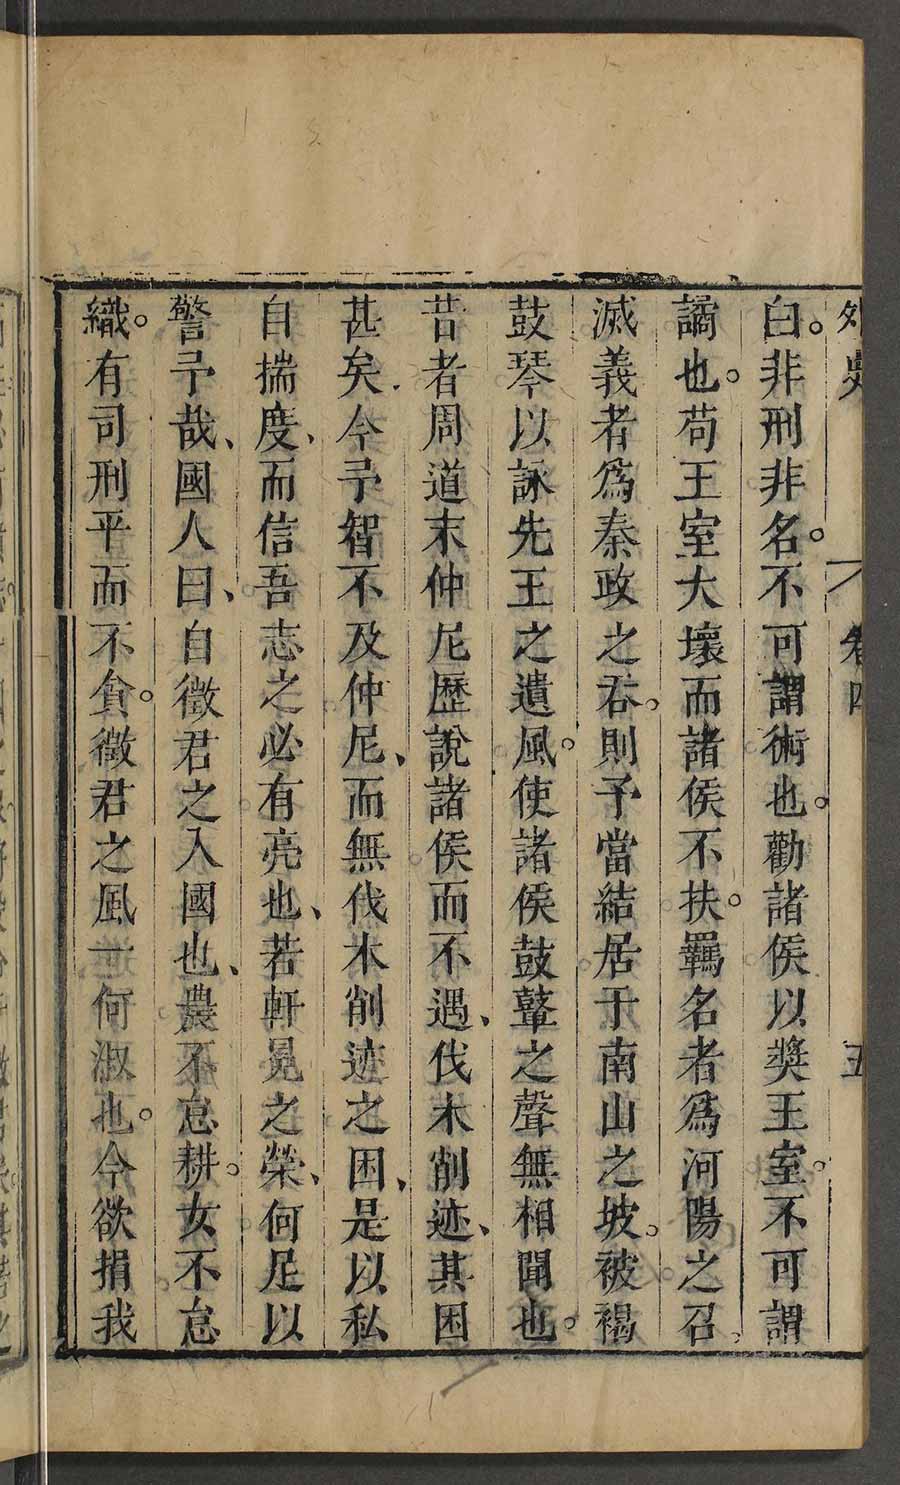 外史 卷四 五
白。非刑非名。不可謂術也。勸諸侯以奬王室。不可謂
譎也。苟王室大壞而諸侯不扶。羈名者爲河陽之召、
滅義者爲秦政之吞。則予當結居于南山之坡。被褐
鼓琴以詠先王之遺風。使諸侯鼓鼙之聲無相聞也。
昔者周道末仲尼歷說諸侯而不遇、伐木削迹、其困
甚矣今予智不及仲尼、而無伐木削迹之困、是以私
自揣度、而信吾志之必有亮也、若軒冕之榮、何足以
警予哉、國人曰、自徵君之入國也、農不怠耕。女不怠
織。有司刑平而不貪。徵君之風一何淑也。今欲捐我